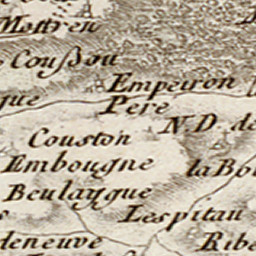 Mottren
Coußou
Empeiron
que
Pere
N.D. de
Couston
Embougne
la Bo
Beulaygue
Lespitau
deneuve
Ribe